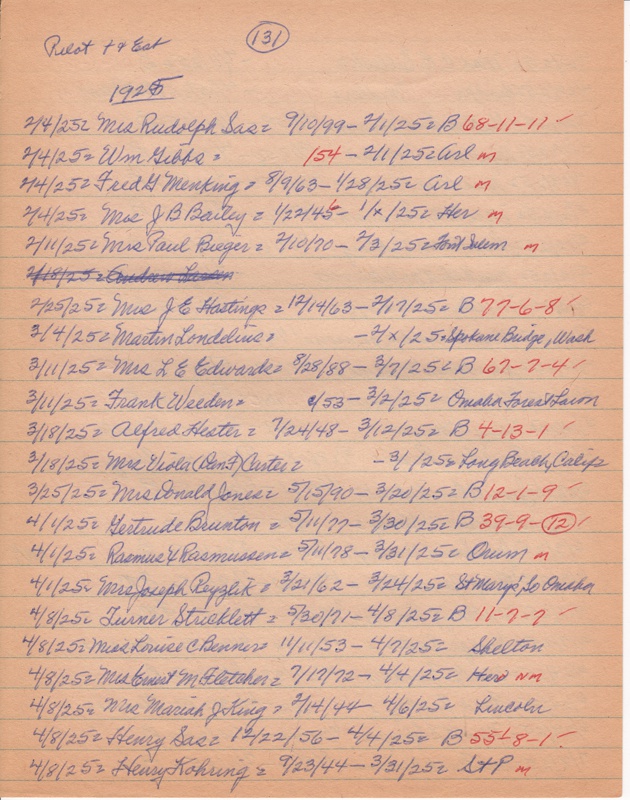 Pilot + & Ent
131
1925
2/4/25 = Mrs Rudolph Sas = 9/10/99 - 2/1/25 = B 68-11-11 ✓
2/4/25 = Wm Gibbs = 154 - 2/1/25 = Arl m
2/4/25 = Fred G Menking = 8/9/63 - 1/28/25 = Arl m
2/4/25 = Mrs J B Bailey = 1/22/45 - 1/x/25 = Her m
2/11/25 = Mrs Paul Rieger = 2/10/70 - 2/3/25 = m
2/18/25 = Andrew Larsen
2/25/25 = Mrs J E Hastings = 12/14/63 - 2/17/25 = B 77-6-8 ✓
3/4/25 = Martin Londelius = - 2/x/25 = Spokane Bridge, Wash
3/11/25 = Mrs L E Edwards = 8/28/88 - 3/7/25 = B 67-7-4 ✓
3/11/25 = Frank Weeden = c/53 - 3/2/25 = Omaha Forest Lawn
3/18/25 = Alfred Hester = 7/24/48 - 3/12/25 = B 4-13-1 ✓
3/18/25 = Mrs Viola (Den F) Carter = - 3/ /25 = Long Beach, Calif
3/25/25 = Mrs Donald Jones = 5/15/90 - 3/20/25 = B 12-1-9 ✓
4/1/25 = Gertrude Brunton = 5/11/77 - 3/30/25 = B 39-9-12 ✓
4/1/25 = Rasmus Y Rasmussen = 5/11/78 - 3/31/25 = Orum m
4/1/25 = Mrs Joseph Reyzlik = 3/21/62 - 3/24/25 = St Mary's So Omaha
4/8/25 = Turner Stricklett = 5/30/71 - 4/8/25 = B 11-7-7 ✓
4/8/25 = Miss Louise C Benner = 11/11/53 - 4/7/25 = Shelton
4/8/25 = Mrs Ernest M Fletcher = 7/17/72 - 4/4/25 = Her Nm
4/8/25 = Mrs Mariah J King = 2/14/44 - 4/6/25 = Lincoln
4/8/25 = Henry Sas = 12/22/56 - 4/4/25 = B 55½-8-1 ✓
4/8/25 = Henry Kohring = 9/23/44 - 3/31/25 = St P m